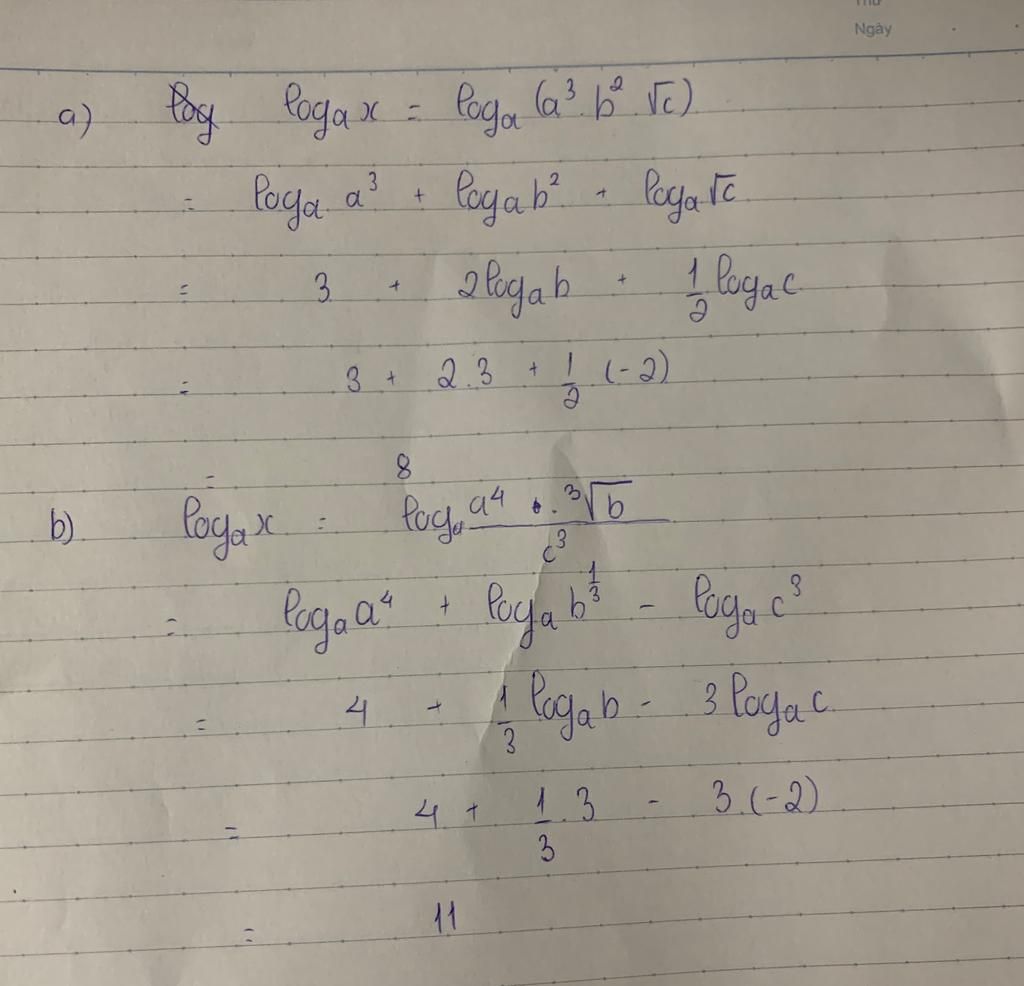 Thứ
Ngày
a) log logₐx = logₐ(a³.b².√c)
= logₐ a³ + logₐb² + logₐ√c
= 3 + 2logₐb + 1/2 logₐc
= 3 + 2.3 + 1/2 (-2)
= 8
b) logₐx = logₐ (a⁴ . ³√b)/c³
= logₐa⁴ + logₐb^(1/3) - logₐc³
= 4 + 1/3 logₐb - 3logₐc
= 4 + 1/3 .3 - 3.(-2)
= 11